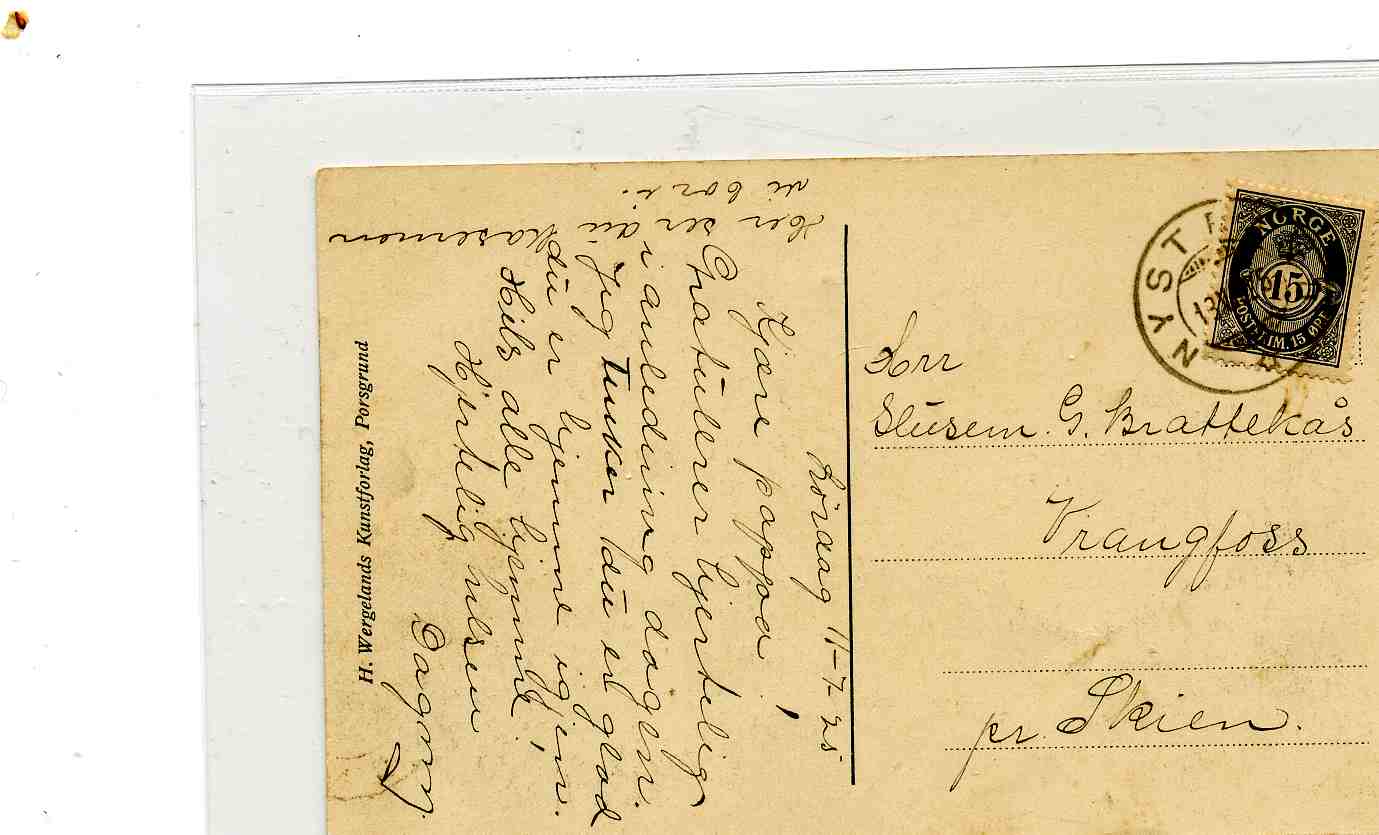 Lördag 11-7-25.
Kjære pappa!
Gratulerer hjertelig
i anledning dagen.
Jeg tenker du er glad
du er hjemme igjen.
Hils alle hjemme!
Hjertelig hilsen
Dagny
Her ser du kasernen
vi bor i.
H. Wergelands Kunstforlag, Porsgrund
NYST
NORGE
15
POSTFRIM. 15 ØRE
Herr
Slusem. G. Brattekås
Vrangfoss
pr. Skien.